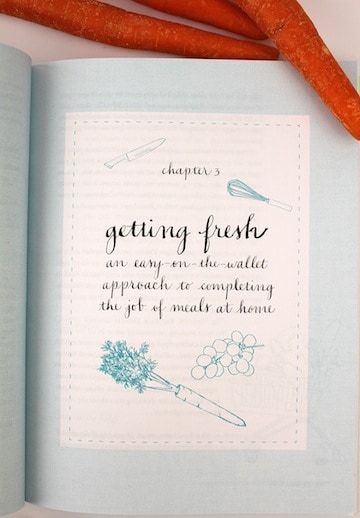 chapter 3
getting fresh
an easy-on-the-wallet
approach to completing
the job of meals at home